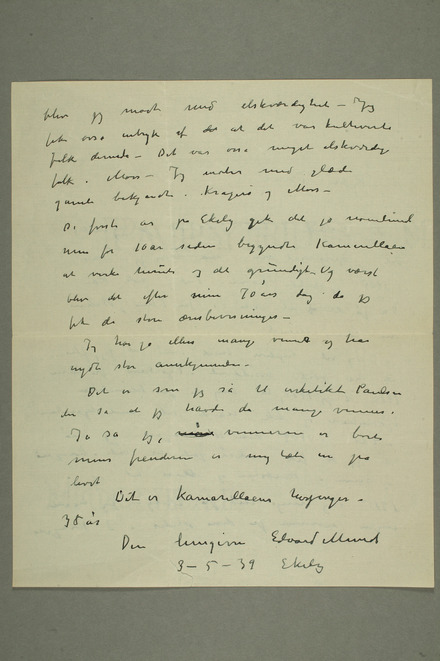 blev jeg mødt med elskværdighet – Jeg
fik også indtryk af at det var kultiverte
folk dernede – Det var også meget elskværdige
folk i Moss – Jeg møder med glæde
gamle bekjendte i Kragerø og Moss –
De første år på Ekely gik det jo
men for 10 aar siden begyndte Kamarillaen
at virke og det grundigt. Og værst
blev det efter min 70 års dag da jeg
fik de store æresbevisninger –
Jeg har jo ellers mange venner og har
nydt stor anerkjennelse –
Det er som jeg sa til arkitekt Paulsen
der sa at jeg havde da mange venner.
Ja sa jeg, vennerne er borte
mens fienderne er meget
Det er Kamarillaens
38 års
Din hengivne Edvard Munch
3–5–39 Ekely